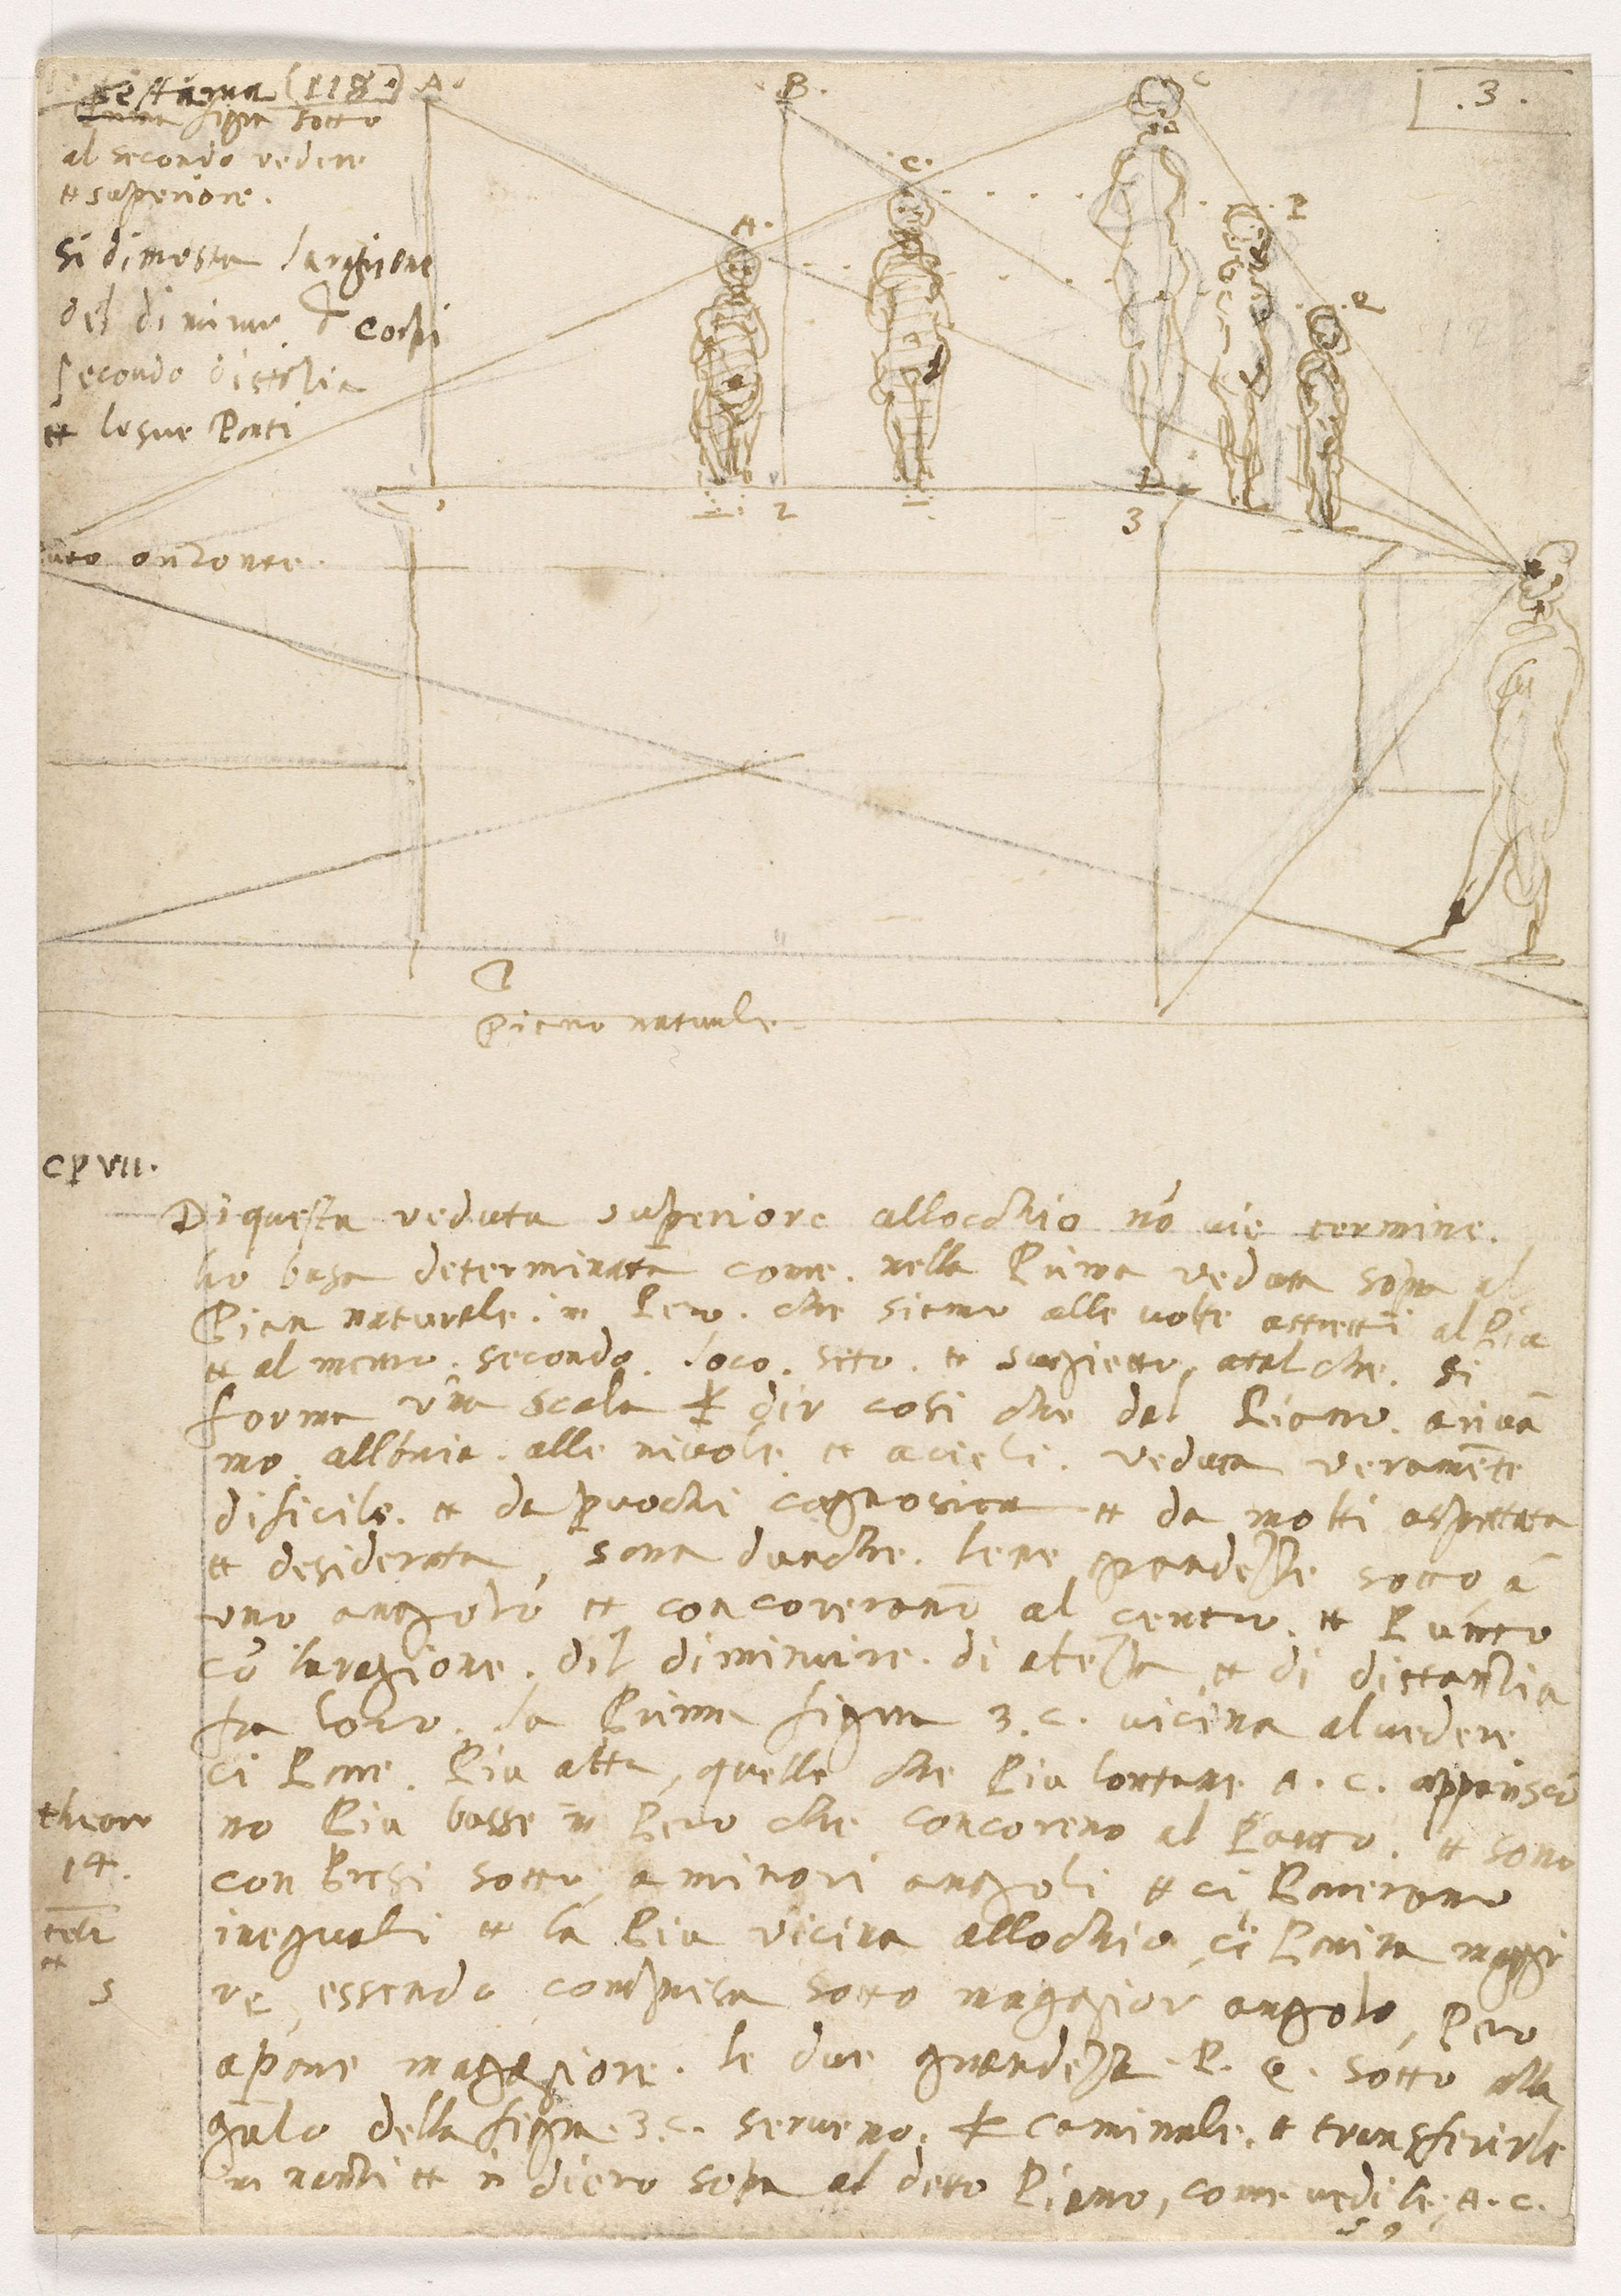 settima (118)
prima figura sotto
al secondo vedere
et superiore.
si dimostra laragione
del diminuir d corpi
secondo distātia
et lesue Parti
A
B.
C
.3.
A.
C.
P
Q
1
2
3
orizonte.
Piano naturale
CP VII.
Di questa veduta superiore allocchio nō vie termine.
ho basa determinata come. nella Prima veduta sopra al
Pian naturale. in Pero. che siamo alle volte astretti al Piā
et al monte. secondo. loco. sito. et sugietto. atal che. si
forma una scala dir cosi che dal Piano. ariva
mo. allōria. alle nivole. et acieli. veduta veramēte
dificile. et da puochi cognosciuta et da molti aspettata
et desiderata, sara dunche. lene grandeze sotto. a
uno angolo et concorerano al centro. et Punto
cō laragione. dil diminuire. di alteza et di distantia
fra loro. la Prima figura 3.C. vicina alvedere
ci Pare. Piu alta, quelle che Piu lontane A.C. apparisco
no Piu basse in Pero che concoreno al Punto. et sono
con Presi sotto a minori angoli et ci Parerano
ineguali et la Piu vicina allochio ci Parira maggi
re, essendo compresa sotto maggior angolo, Pero
apare maggiore. le due grandeze. P. Q. sotto alla
gulo della figura. 3.C. serveno. caminale. et transferirle
in nanti et in diero sopra al detto Piano, come vedi le. A.C.
theor
14.
5